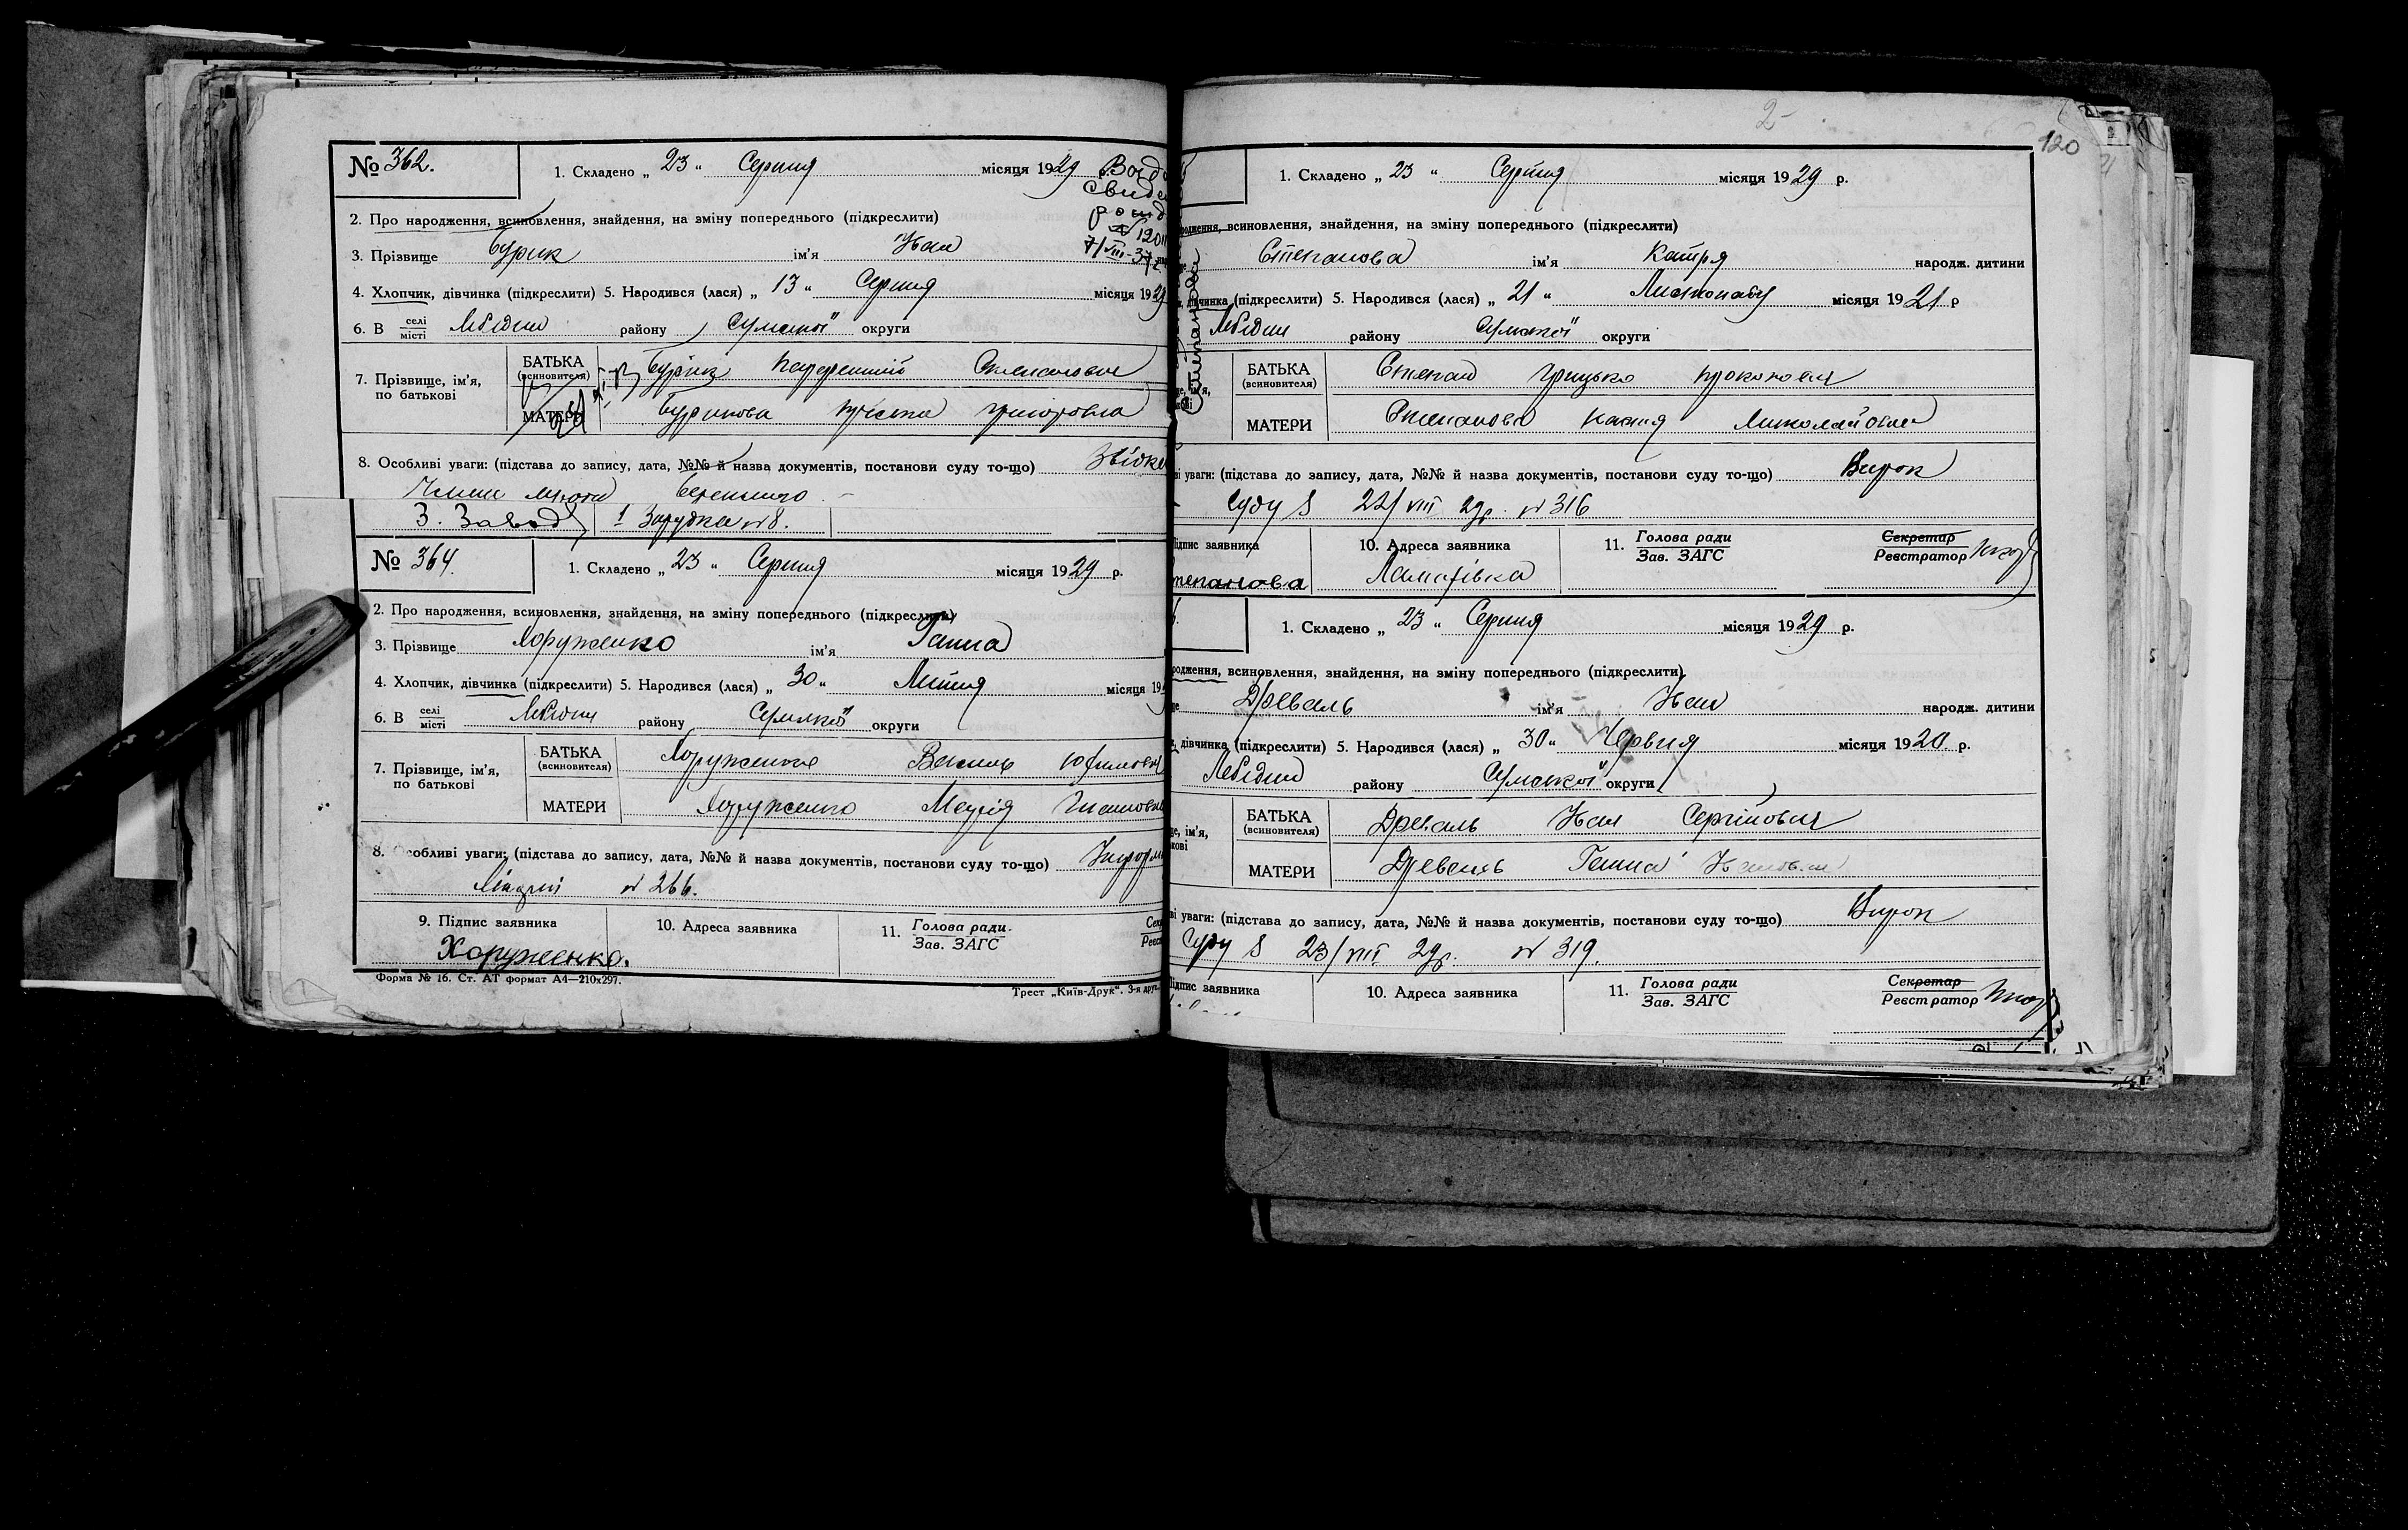 № 362.
1. Складено „ 23 “ Серпня місяця 1929
2. Про народження, всиновлення, знайдення, на зміну попереднього (підкреслити)
3. Прізвище Бурик ім'я Іван
7/VIII-37
4. Хлопчик, дівчинка (підкреслити) 5. Народився (лася) „ 13 “ Серпня місяця 1929
6. В селі місті Лебедин району Сумської округи
7. Прізвище, ім'я, по батькові
БАТЬКА (всиновителя) Степанович
МАТЕРИ Бурикова Григоровна
8. Особливі уваги: (підстава до запису, дата, №№ й назва документів, постанови суду то-що)
З. Завод 1 Зарудка № 8.
№ 364.
1. Складено „ 23 “ Серпня місяця 1929 р.
2. Про народження, всиновлення, знайдення, на зміну попереднього (підкреслити)
3. Прізвище Хоруженко ім'я Ганна
4. Хлопчик, дівчинка (підкреслити) 5. Народився (лася) „ 30 “ Липня місяця 19
6. В селі місті Лебедин району Сумської округи
7. Прізвище, ім'я, по батькові
БАТЬКА (всиновителя) Хоруженко Василь Юхимович
МАТЕРИ Хоруженко Марія
8. Особливі уваги: (підстава до запису, дата, №№ й назва документів, постанови суду то-що)
№ 266.
9. Підпис заявника 10. Адреса заявника 11. Голова ради. Зав. ЗАГС
Хоруженко.
Форма № 16. Ст. АТ формат А4—210х297.
Трест „Київ-Друк“. 3-я друк.
2
120
1. Складено „ 23 “ Серпня місяця 1929 р.
всиновлення, знайдення, на зміну попереднього (підкреслити)
Степанова ім'я Катря народж. дитини
Степанова
дівчинка (підкреслити) 5. Народився (лася) „ 21 “ Листопаду місяця 1921 р
Лебедин району Сумської округи
БАТЬКА (всиновителя) Степан Грицько Прокопович
МАТЕРИ Степанова Миколаївна
уваги: (підстава до запису, дата, №№ й назва документів, постанови суду то-що) Вирок
Суду 8 22/VIII 29р. № 316
Підпис заявника 10. Адреса заявника 11. Голова ради Зав. ЗАГС Секретар Реєстратор
тепанова
1. Складено „ 23 “ Серпня місяця 1929 р.
всиновлення, знайдення, на зміну попереднього (підкреслити)
Древаль ім'я Іван народж. дитини
дівчинка (підкреслити) 5. Народився (лася) „ 30 “ Червня місяця 1920 р.
Лебедин району Сумської округи
БАТЬКА (всиновителя) Древаль Іван Сергійович
МАТЕРИ Древаль Ганна Іванівна
уваги: (підстава до запису, дата, №№ й назва документів, постанови суду то-що) Вирок
Суду 8 23/VIII 29р. № 319.
Підпис заявника 10. Адреса заявника 11. Голова ради Зав. ЗАГС Секретар Реєстратор